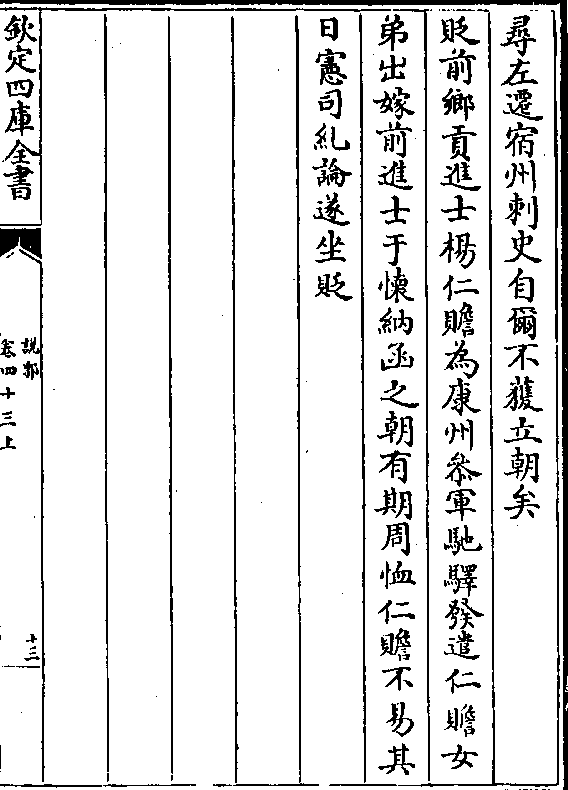 尋左遷宿州刺史自爾不獲立朝矣
貶前鄉貢進士楊仁贍為康州叅軍馳驛發遣仁贍女
弟出嫁前進士于懷納函之朝有期周恤仁贍不易其
日憲司糺論遂坐貶
欽定四庫全書
說郛
卷四十三上
十三